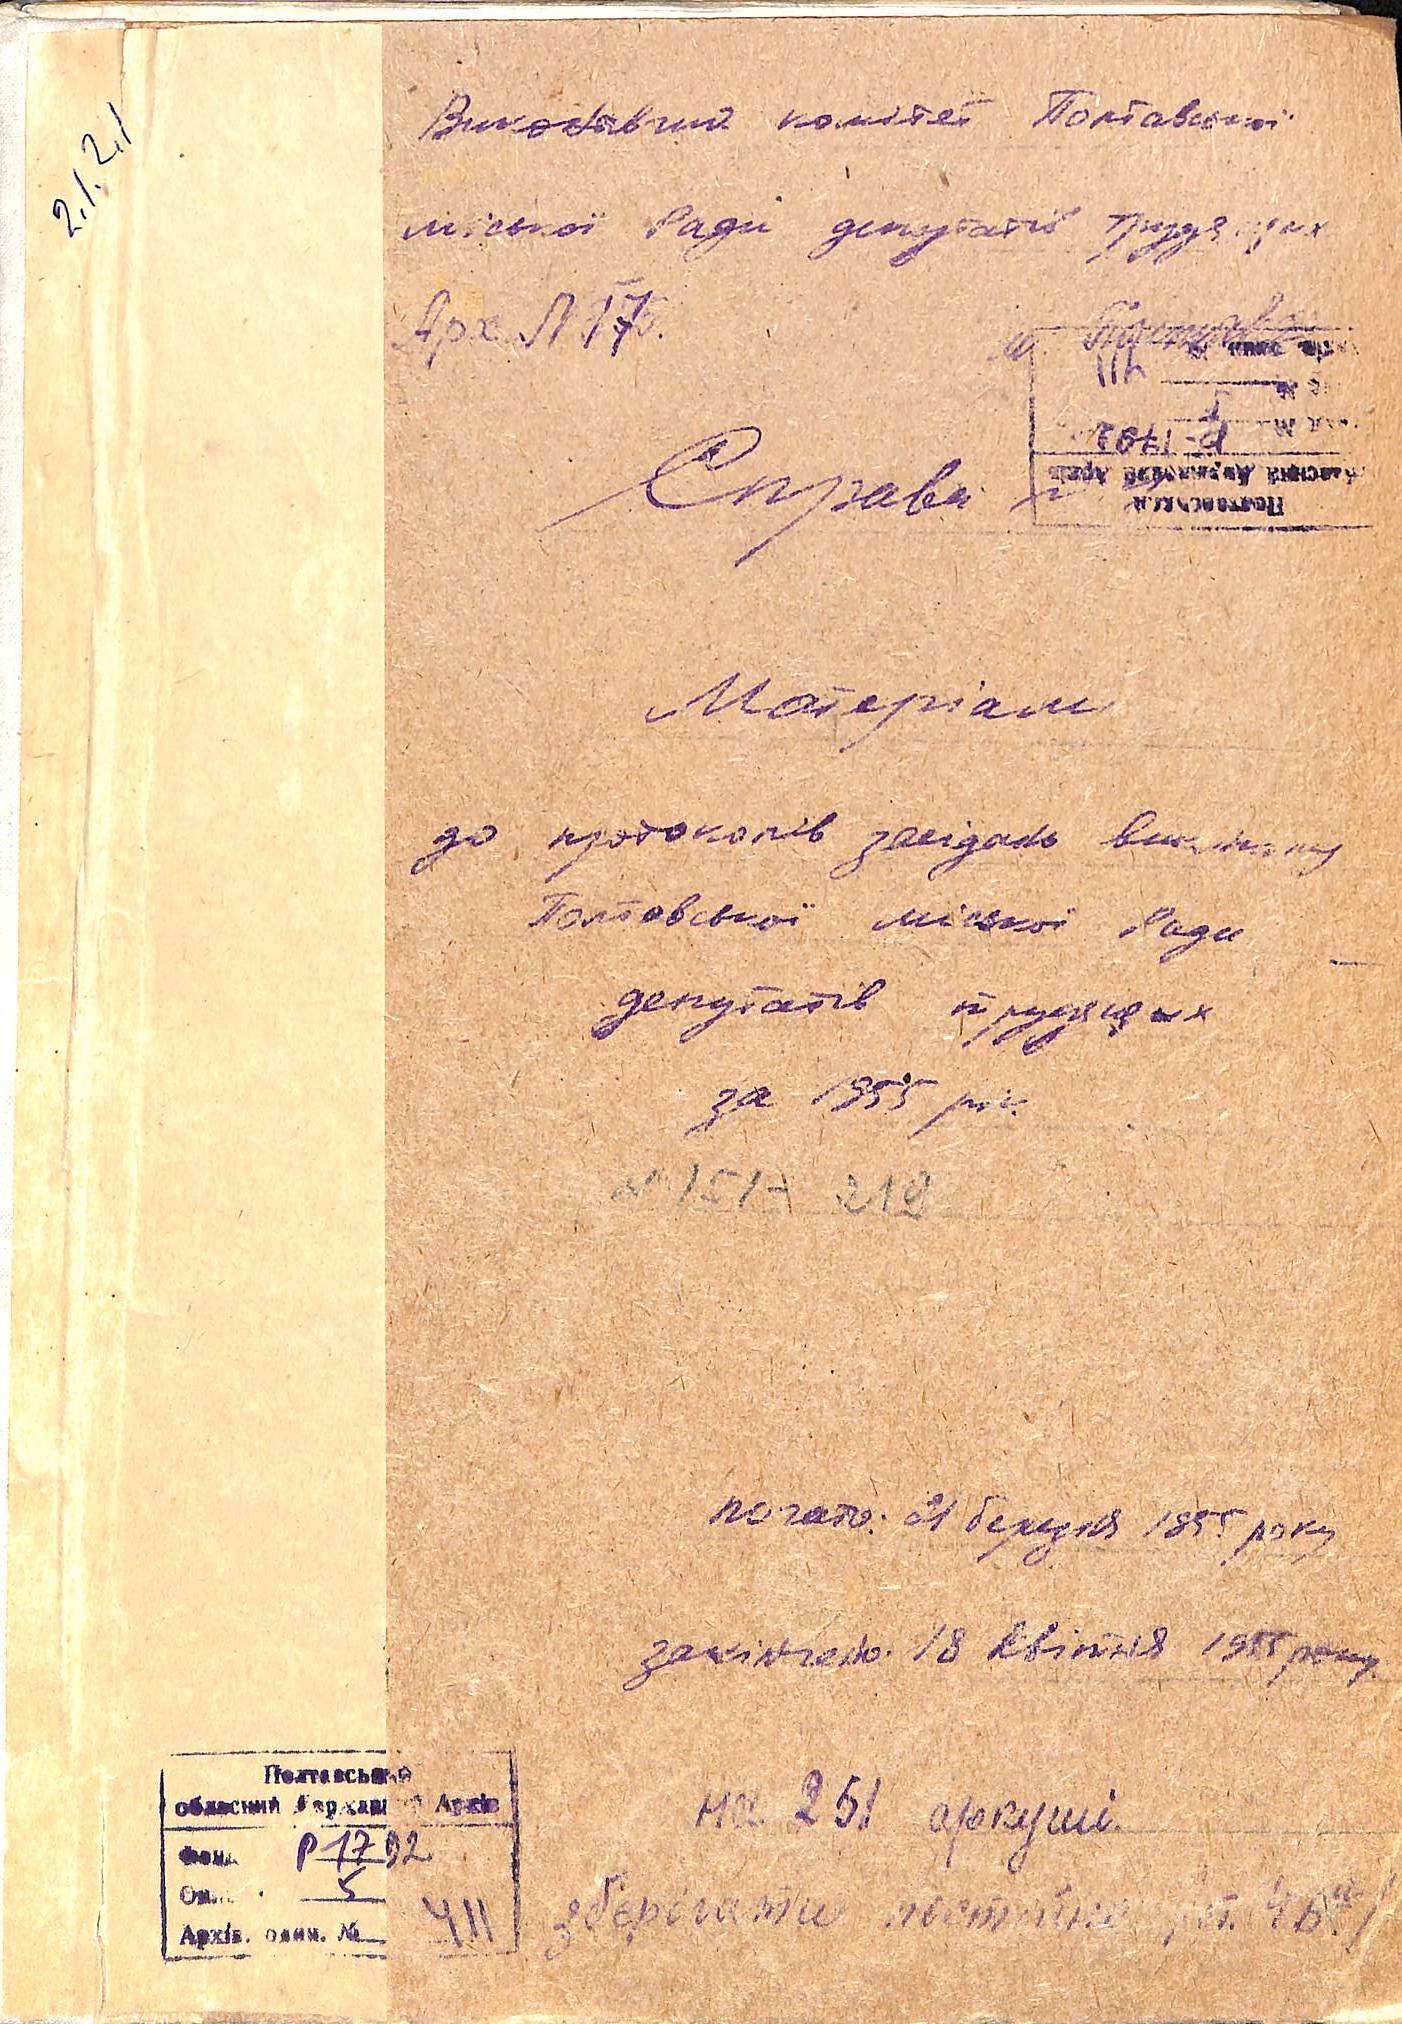 2.1.2.1
Виконавчий комітет Полтавської
міської Ради депутатів трудящих
Арх. №
м. Полтава
Полтавський
обласний Державний Архів
Р-1792
5
411
Справа №
Матеріали
до протоколів засідань виконкому
Полтавської міської Ради
депутатів трудящих
за 1955 рік
почато: 21 березня 1955 року
закінчено: 18 квітня 1955 року
на 251 аркуші
зберігати постійно
Полтавський
обласний Державний Архів
Фонд Р 1792
Опис 5
Архів. один. № 411